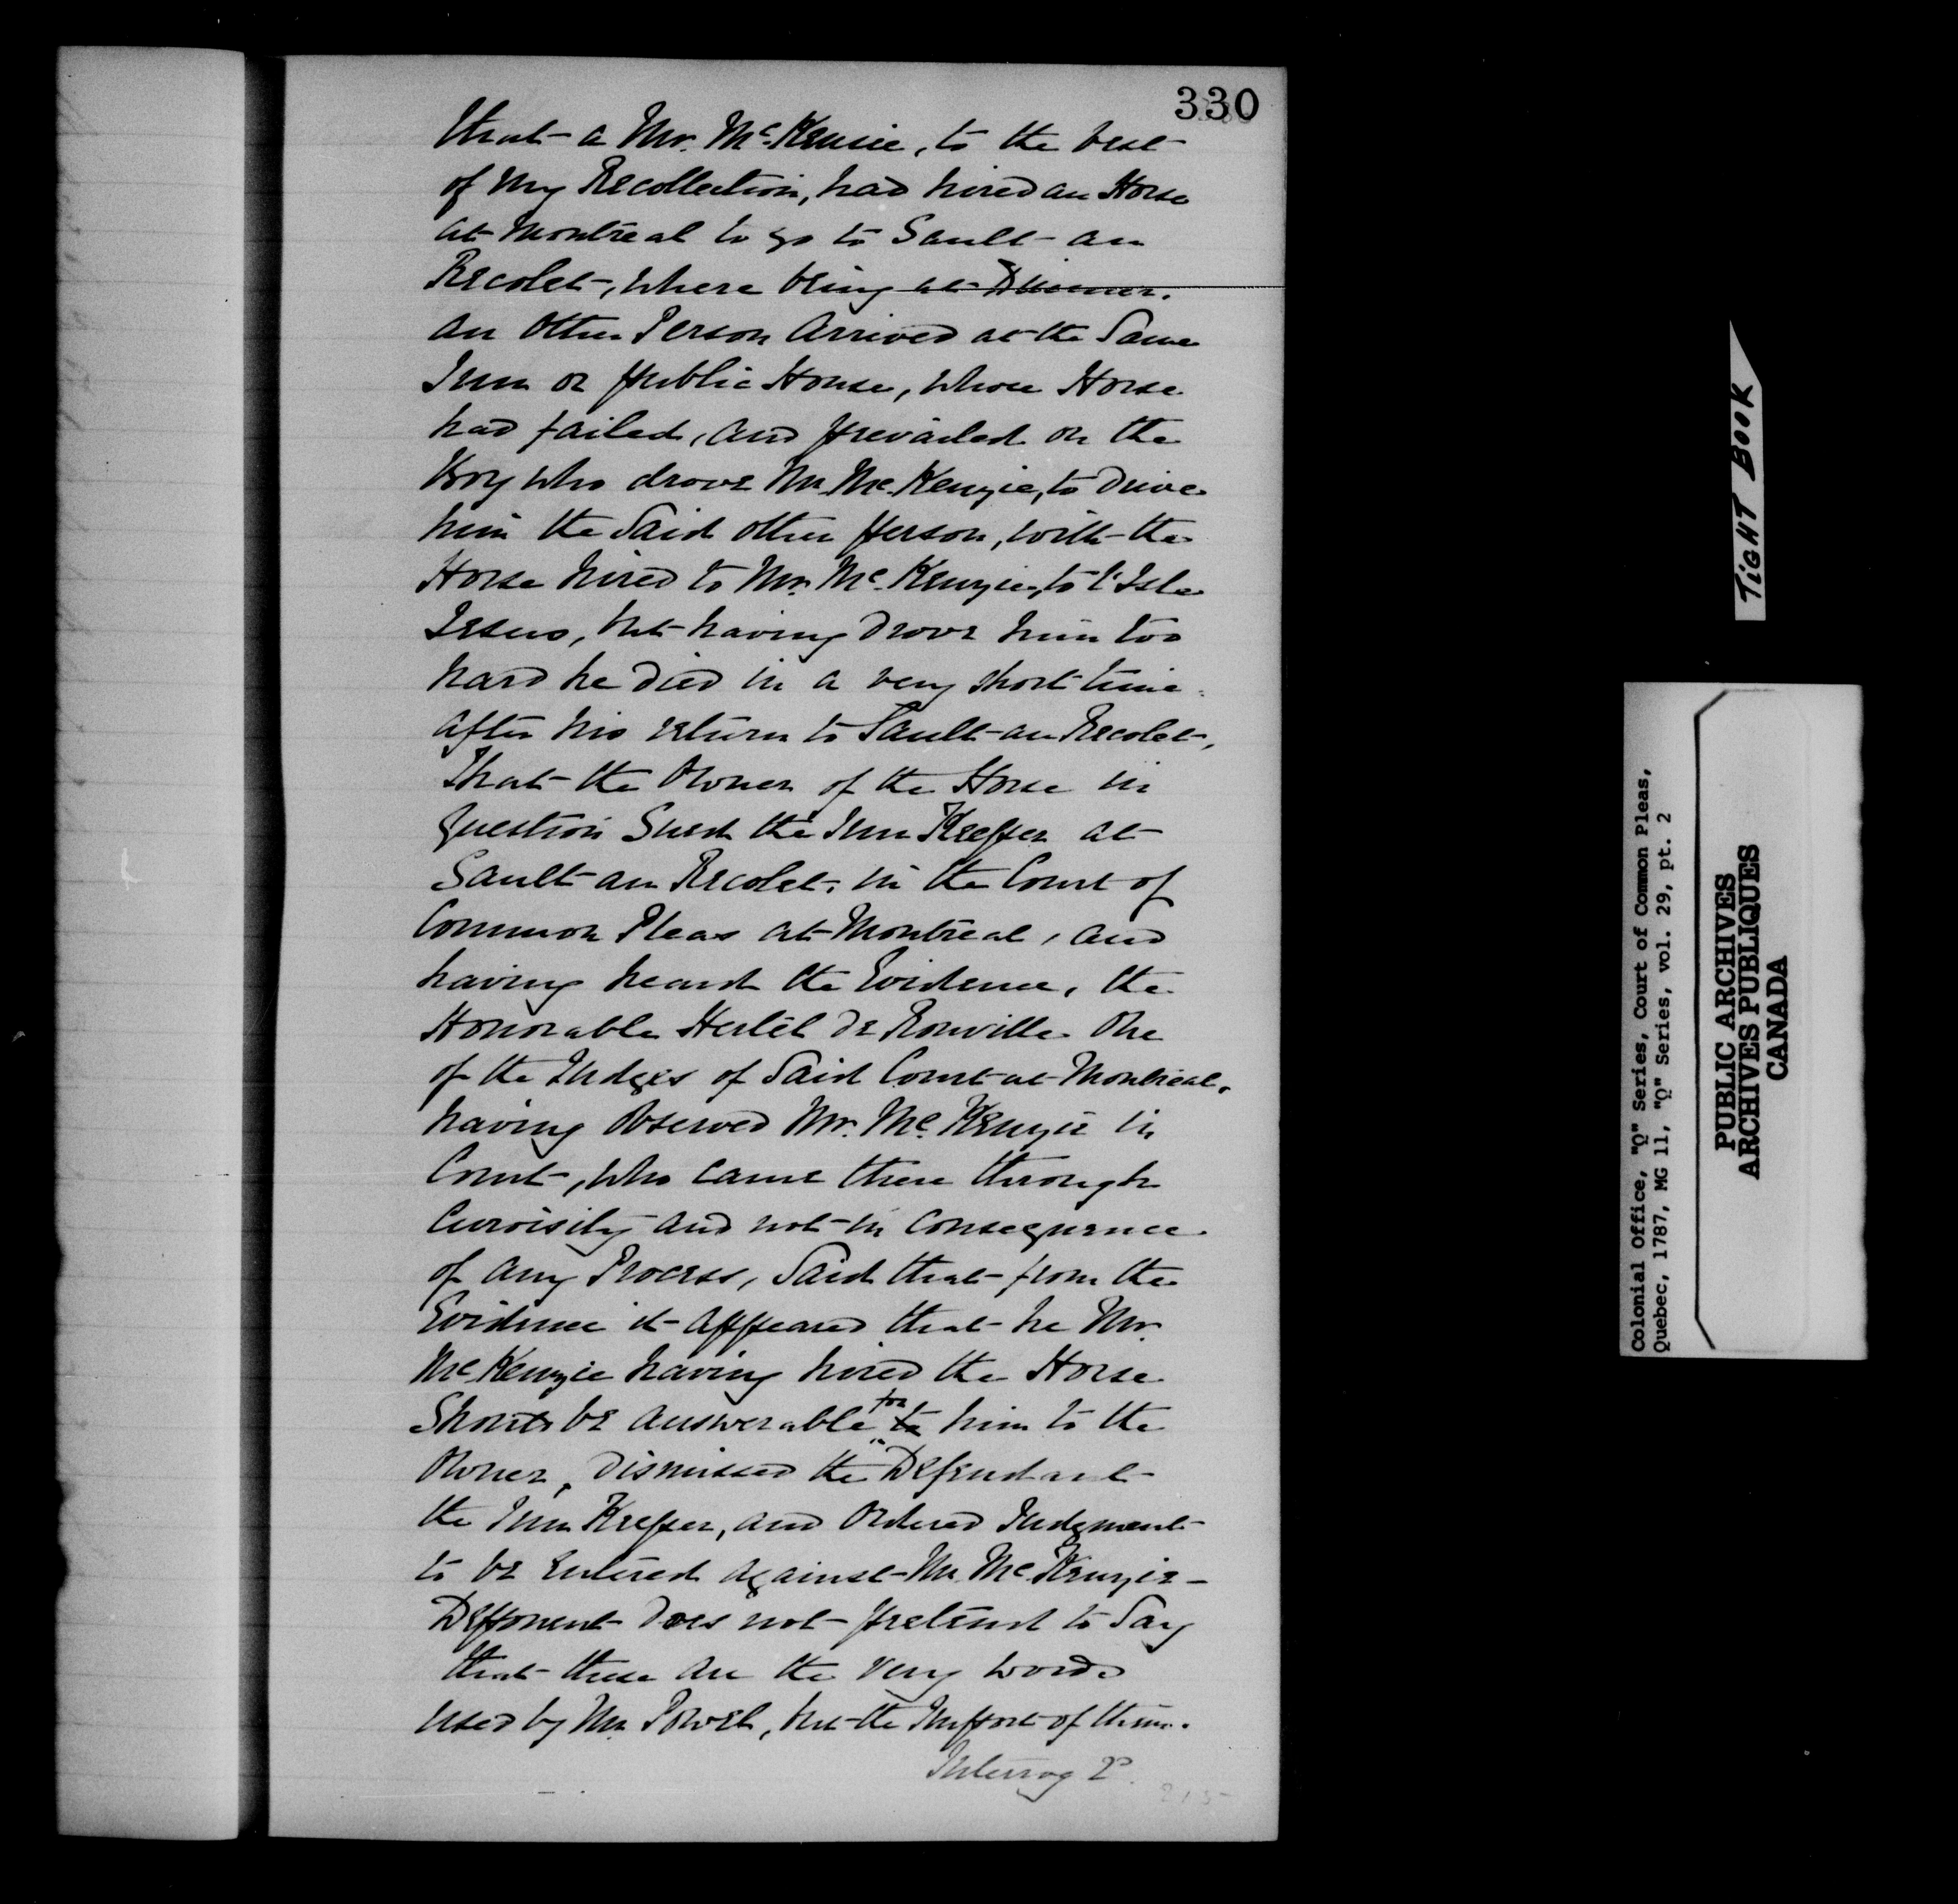 330
that a Mr. McKensie, to the best
of my Recollection, had hired an Horse
at Montreal to go to Sault-au
Recolet, where being at Dinner.
an other Person Arrived at the Same
Inn or public House, whose Horse
had failed, and prevailed on the
Boy who drove Mr. McKenzie, to Drive
him the Said other person, with the
Horse hired to Mr. McKenzie, to l'Isle
Jesus, but having Drove him too
hard he Died in a very short time
after his return to Sault-au Recolet,
That the Owner of the Horse in
Question Sued the Inn Keeper at
Sault-au Recolet, in the Court of
Common Pleas at Montreal, and
having heard the Evidence, the
Honorable Hertel De Rouville One
of the Judges of Said Court at Montreal,
having Observed Mr. McKenzie in
Court, who came there through
Curoisity and not in consequence
of any Process, Said that from the
Evidence it Appeared that he Mr.
McKenzie having hired the Horse
Should be answerable for to him to the
Owner, Dismissed the Defendant
the Inn Keeper, and Ordered Judgment
to be Entered against Mr. McKenzie —
Deponent Does not pretend to Say
that these are the very words
used by Mr. Powel, but the Purport of them.
Interrog 2d.
215
TIGHT BOOK
Colonial Office, "Q" Series, Court of Common Pleas,
Quebec, 1787, MG 11, "Q" Series, vol. 29, pt. 2
PUBLIC ARCHIVES
ARCHIVES PUBLIQUES
CANADA